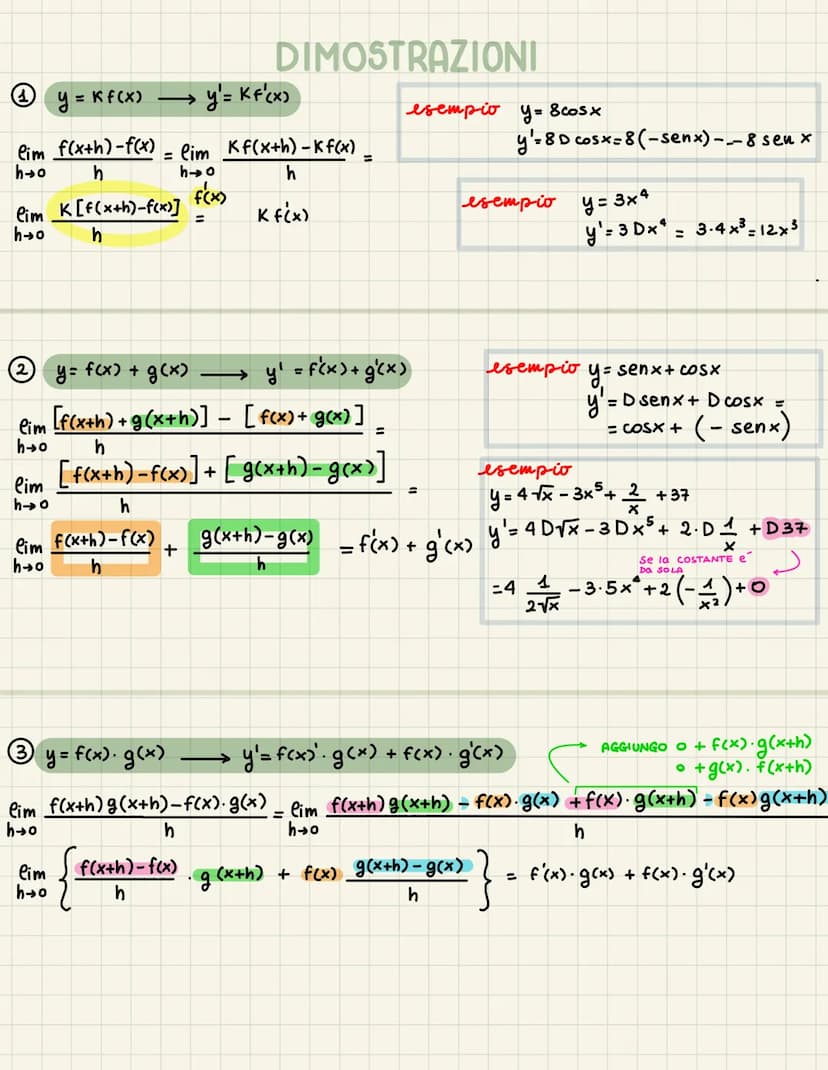 DIMOSTRAZIONI
① y = K f(x) ⟶ y' = K f'(x)
lim h→0 f(x+h)-f(x) / h = lim h→0 Kf(x+h)-Kf(x) / h =
lim h→0 K[f(x+h)-f(x)] / h f'(x) = K f'(x)
esempio y = 8cosx
y' = 8 D cosx = 8(-senx) - -- 8 sen x
esempio y = 3x⁴
y' = 3 Dx⁴ = 3·4x³ = 12x³
② y = f(x) + g(x) ⟶ y' = f'(x) + g'(x)
lim h→0 [f(x+h) + g(x+h)] - [f(x) + g(x)] / h =
lim h→0 [f(x+h)-f(x)] + [g(x+h)-g(x)] / h =
lim h→0 f(x+h)-f(x) / h + g(x+h)-g(x) / h = f'(x) + g'(x)
esempio y = senx + cosx
y' = D senx + D cosx =
= cosx + (- senx)
esempio
y = 4√x - 3x⁵ + 2/x + 37
y' = 4 D√x - 3 Dx⁵ + 2·D 1/x + D 37
Se la COSTANTE e'
DA SOLA
= 4 1/2√x - 3·5x⁴ + 2(-1/x²) + 0
③ y = f(x)·g(x) ⟶ y' = f(x)'·g(x) + f(x)·g'(x)
AGGIUNGO 0 + f(x)·g(x+h)
0 + g(x)·f(x+h)
lim h→0 f(x+h)g(x+h)-f(x)·g(x) / h = lim h→0 f(x+h)g(x+h) - f(x)·g(x) + f(x)·g(x+h) - f(x)g(x+h) / h
lim h→0 { f(x+h)-f(x) / h · g(x+h) + f(x) g(x+h)-g(x) / h } = f'(x)·g(x) + f(x)·g'(x)